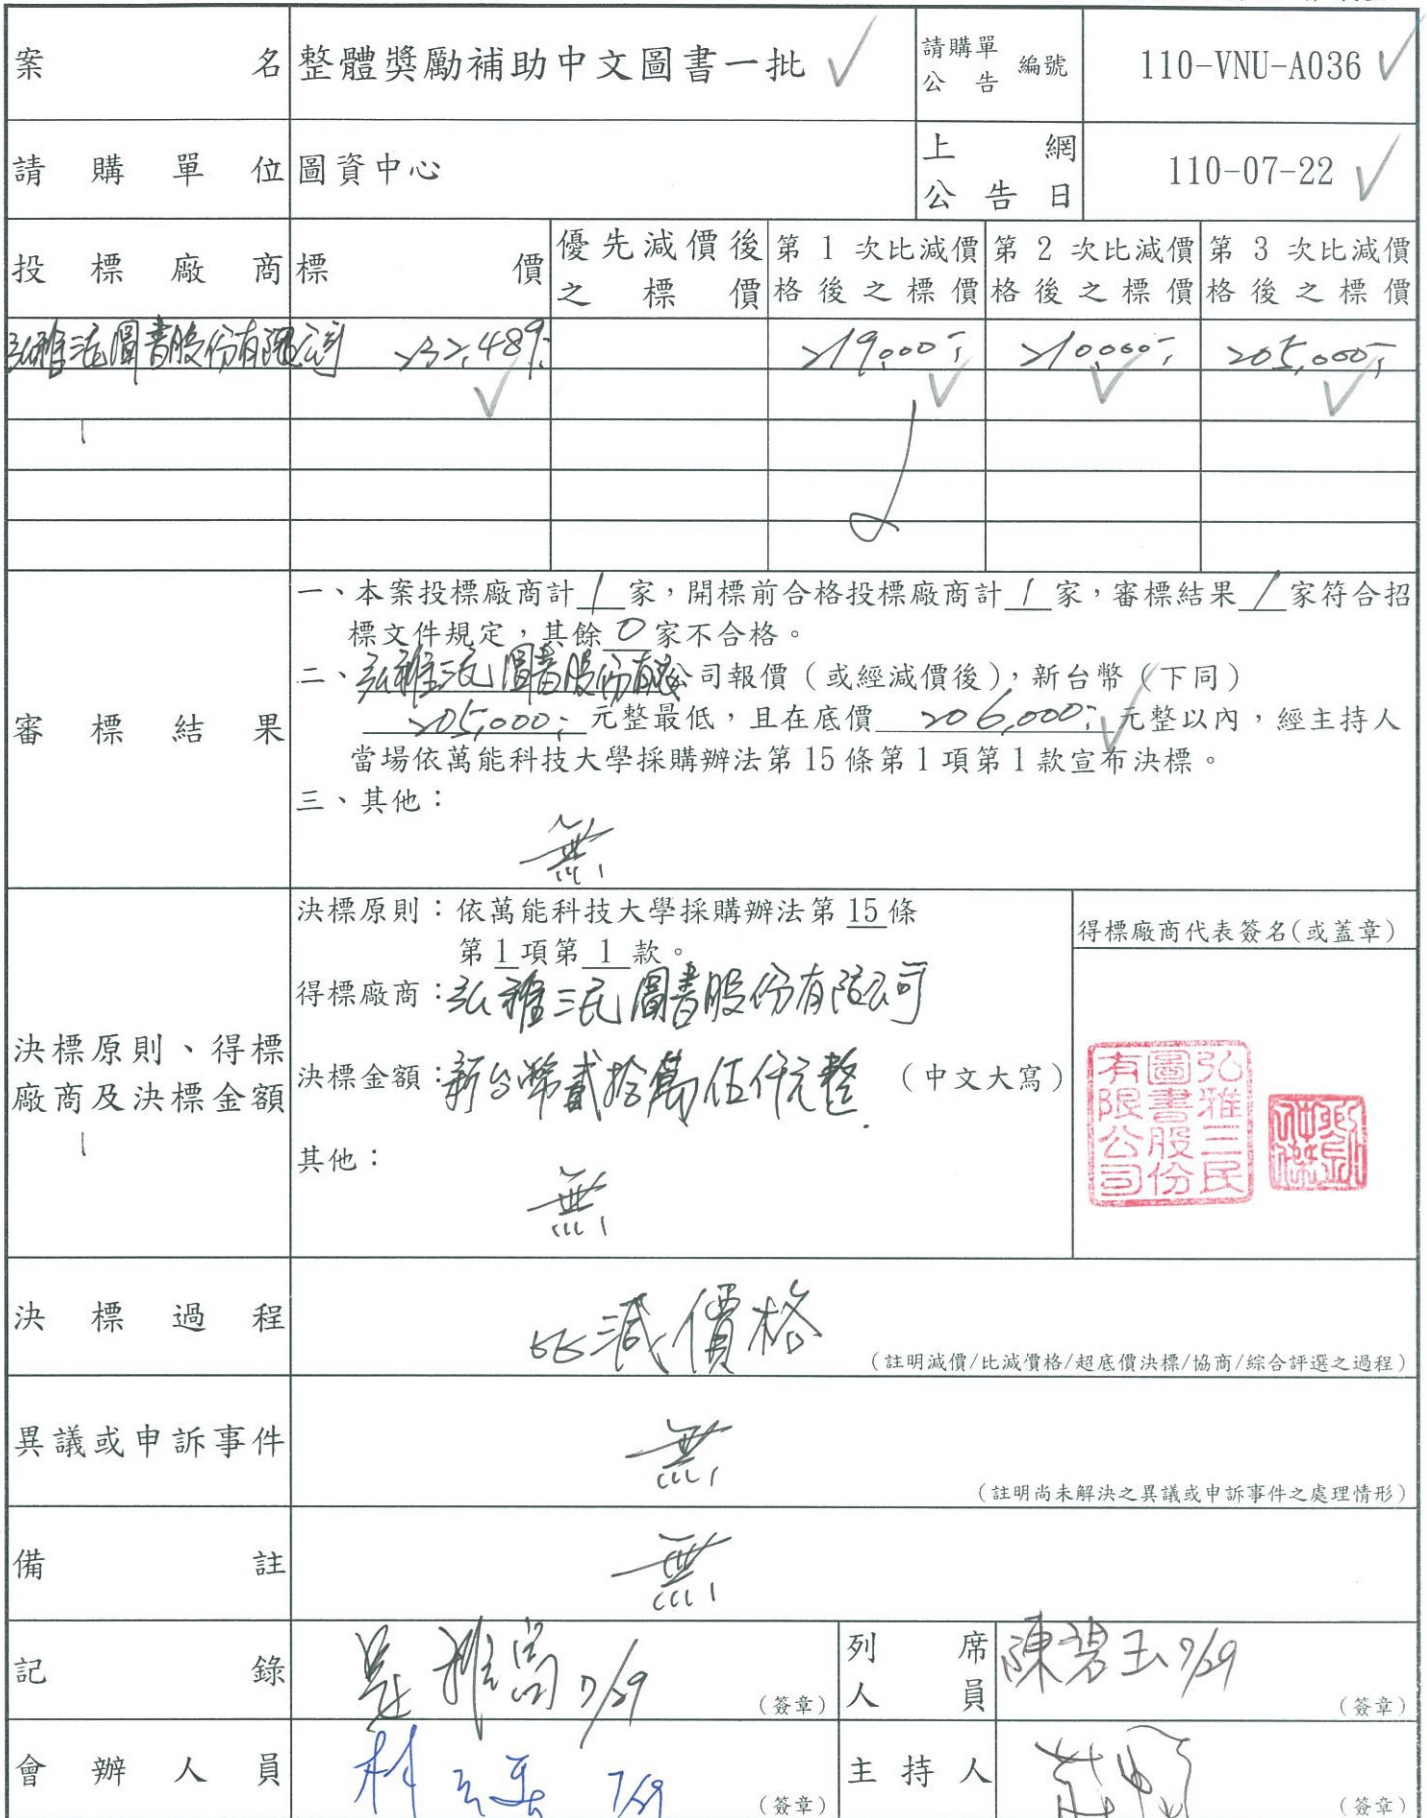 案名 整體獎勵補助中文圖書一批 請購單公告編號 110-VNU-A036
請購單位 圖資中心 上網公告日 110-07-22
投標廠商 標價 優先減價後之標價 第1次比減價格後之標價 第2次比減價格後之標價 第3次比減價格後之標價
弘雅三民圖書股份有限公司 232,489. 219,000- 210,000- 205,000-
審標結果
一、本案投標廠商計 1 家,開標前合格投標廠商計 1 家,審標結果 1 家符合招
標文件規定,其餘 0 家不合格。
二、弘雅三民圖書股份有限公司報價(或經減價後),新台幣(下同)
205,000- 元整最低,且在底價 206,000- 元整以內,經主持人
當場依萬能科技大學採購辦法第15條第1項第1款宣布決標。
三、其他:
無
決標原則、得標
廠商及決標金額
決標原則:依萬能科技大學採購辦法第 15 條
第 1 項第 1 款。
得標廠商:弘雅三民圖書股份有限公司
決標金額:新台幣貳拾萬伍仟元整. (中文大寫)
其他:
無
得標廠商代表簽名(或蓋章)
弘雅三民
圖書股份
有限公司
決標過程 比減價格
(註明減價/比減價格/超底價決標/協商/綜合評選之過程)
異議或申訴事件 無
(註明尚未解決之異議或申訴事件之處理情形)
備註 無
記錄 7/29 (簽章) 列席人員 陳碧玉 7/29 (簽章)
會辦人員 林 7/29 (簽章) 主持人 (簽章)